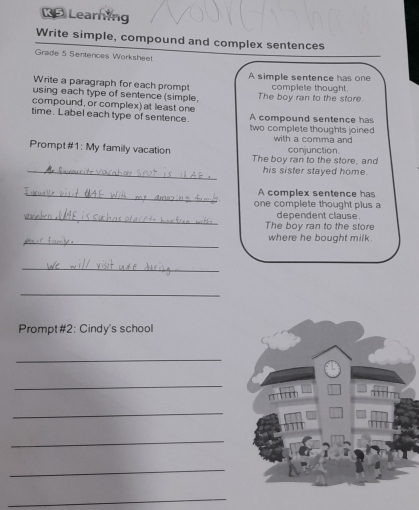 K5 Learning
Write simple, compound and complex sentences
Grade 5 Sentences Worksheet
Write a paragraph for each prompt
using each type of sentence (simple,
compound, or complex) at least one
time. Label each type of sentence.
Prompt #1: My family vacation
vacation spot is UAE.
I usually visit UAE with my amazing family
UAE is such
your family.
We will visit UAE during
Prompt #2: Cindy's school
A simple sentence has one
complete thought.
The boy ran to the store.
A compound sentence has
two complete thoughts joined
with a comma and
conjunction.
The boy ran to the store, and
his sister stayed home.
A complex sentence has
one complete thought plus a
dependent clause.
The boy ran to the store
where he bought milk.